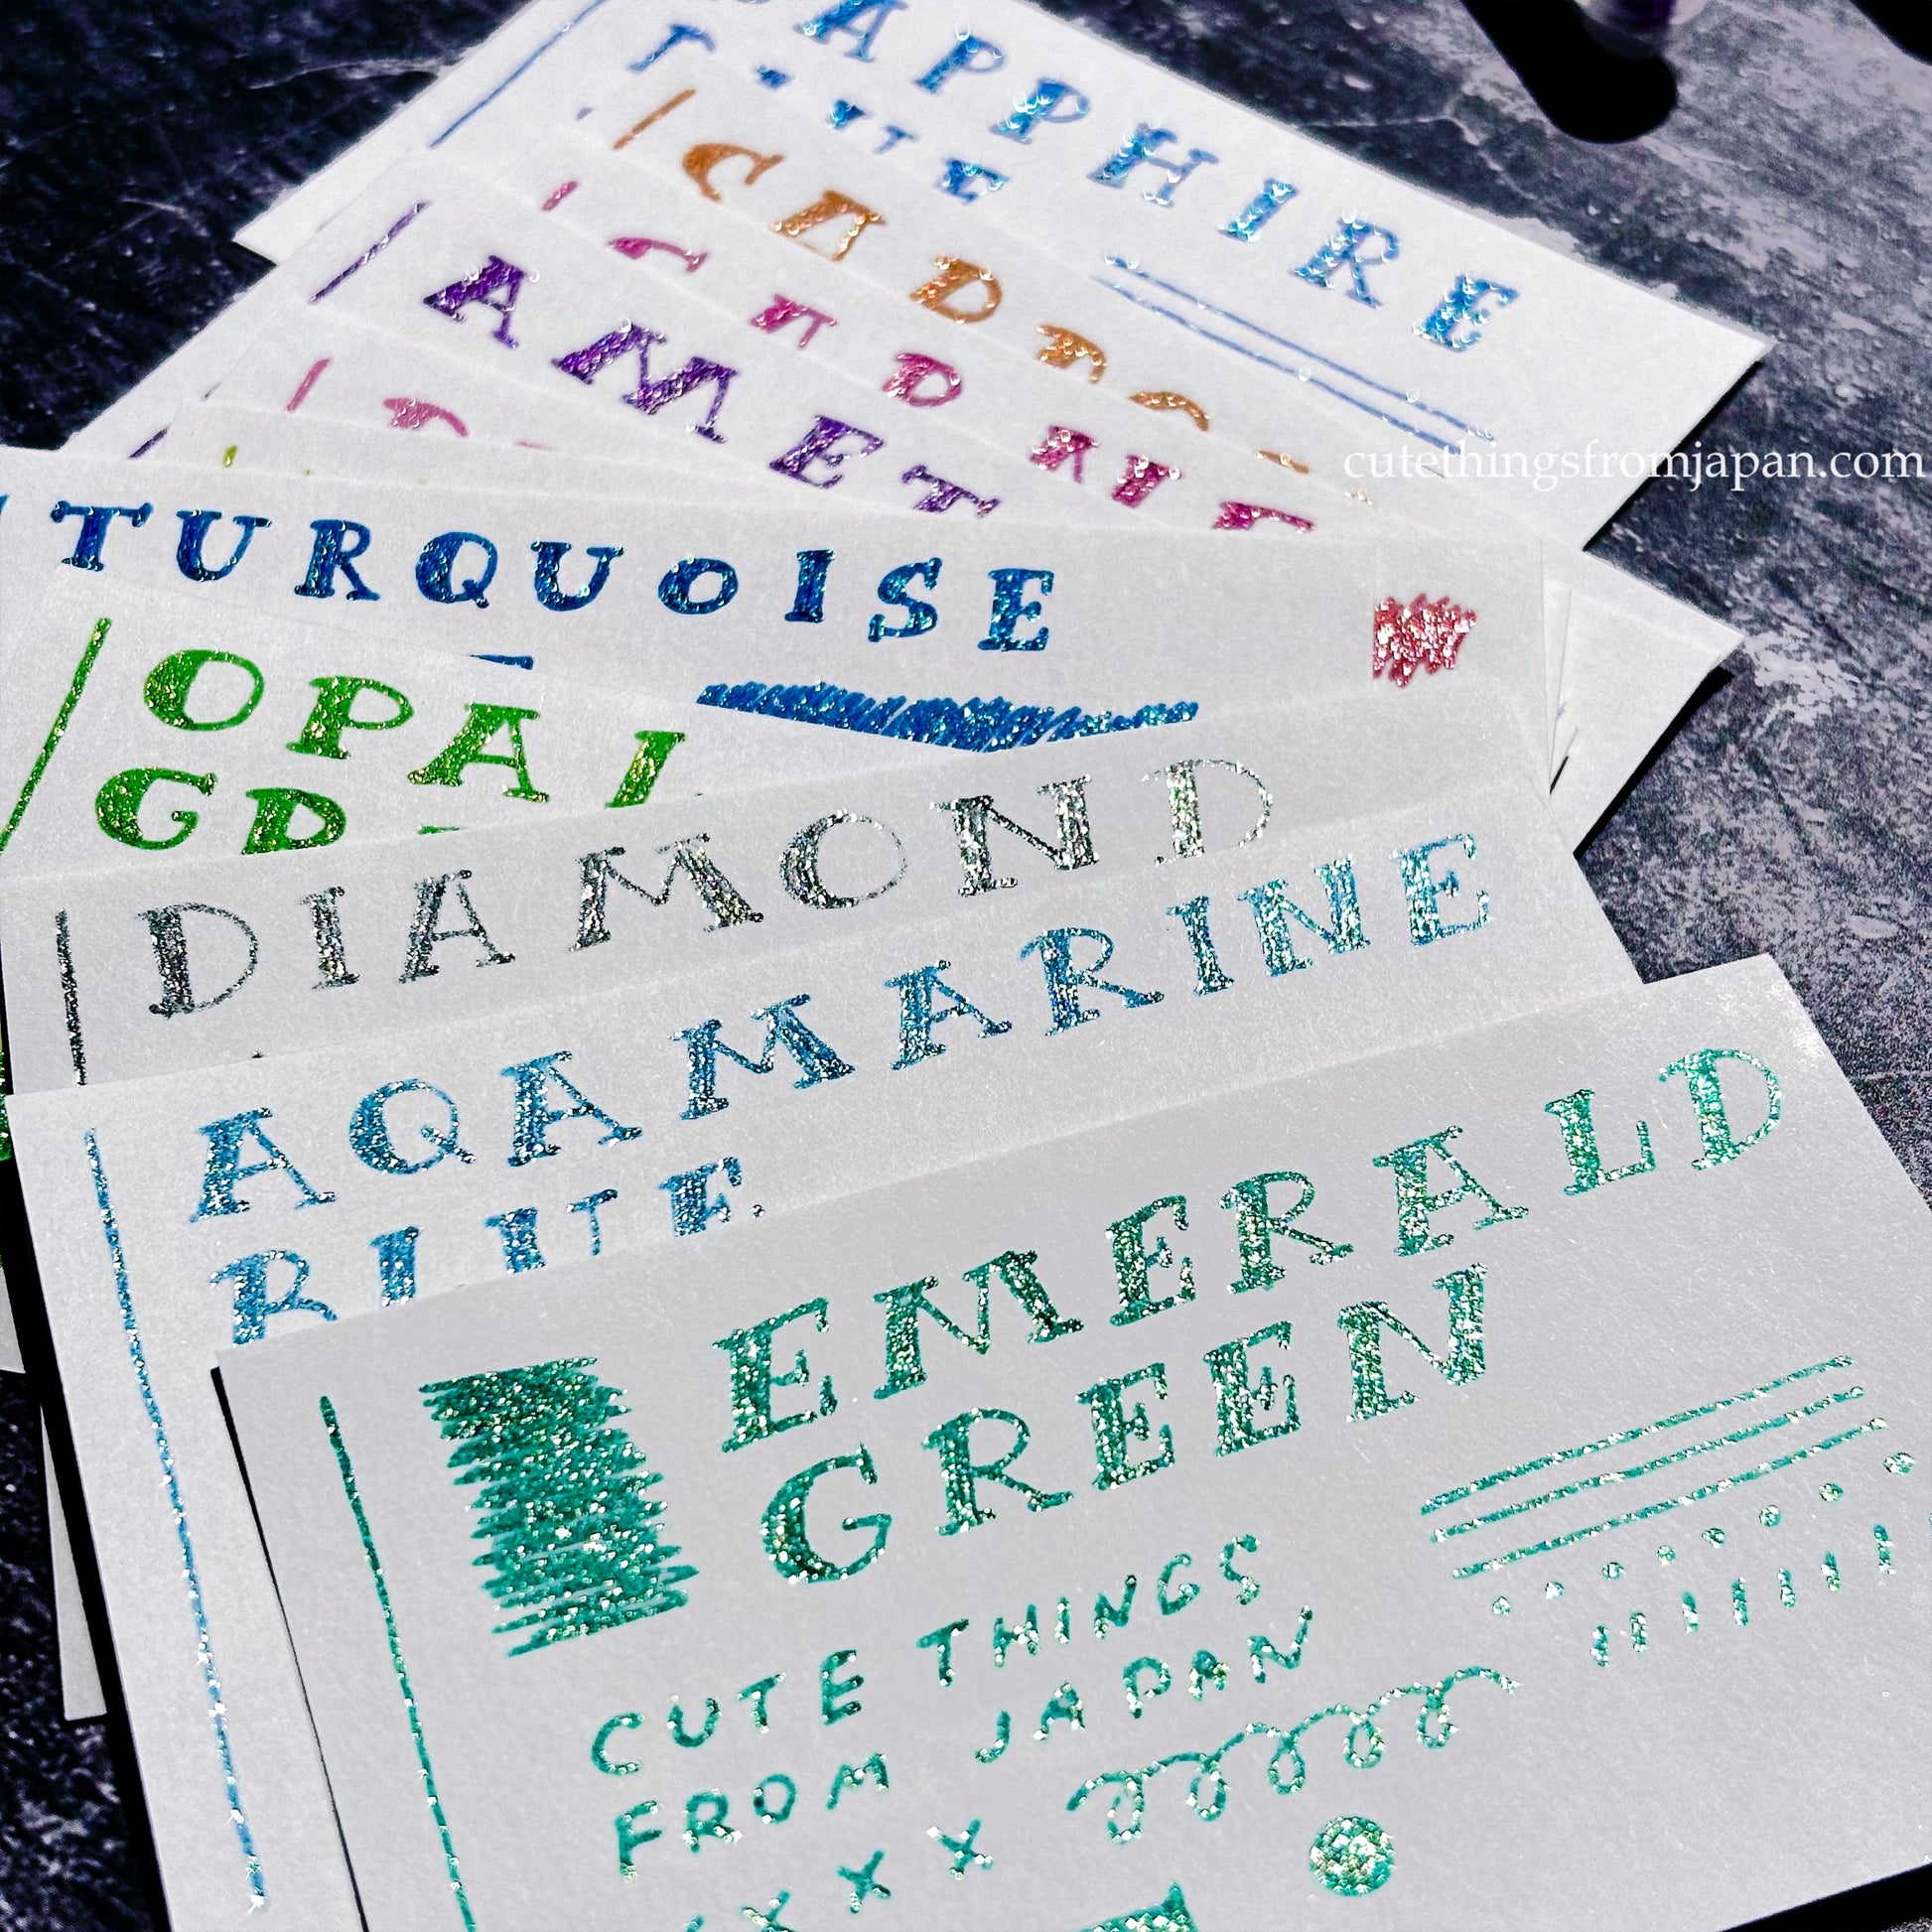 SAPPHIRE
cutethingsfromjapan.com
AMET
TURQUOISE
OPAL
DIAMOND
AQAMARINE
BLUE
EMERALD
GREEN
CUTE THINGS
FROM JAPAN